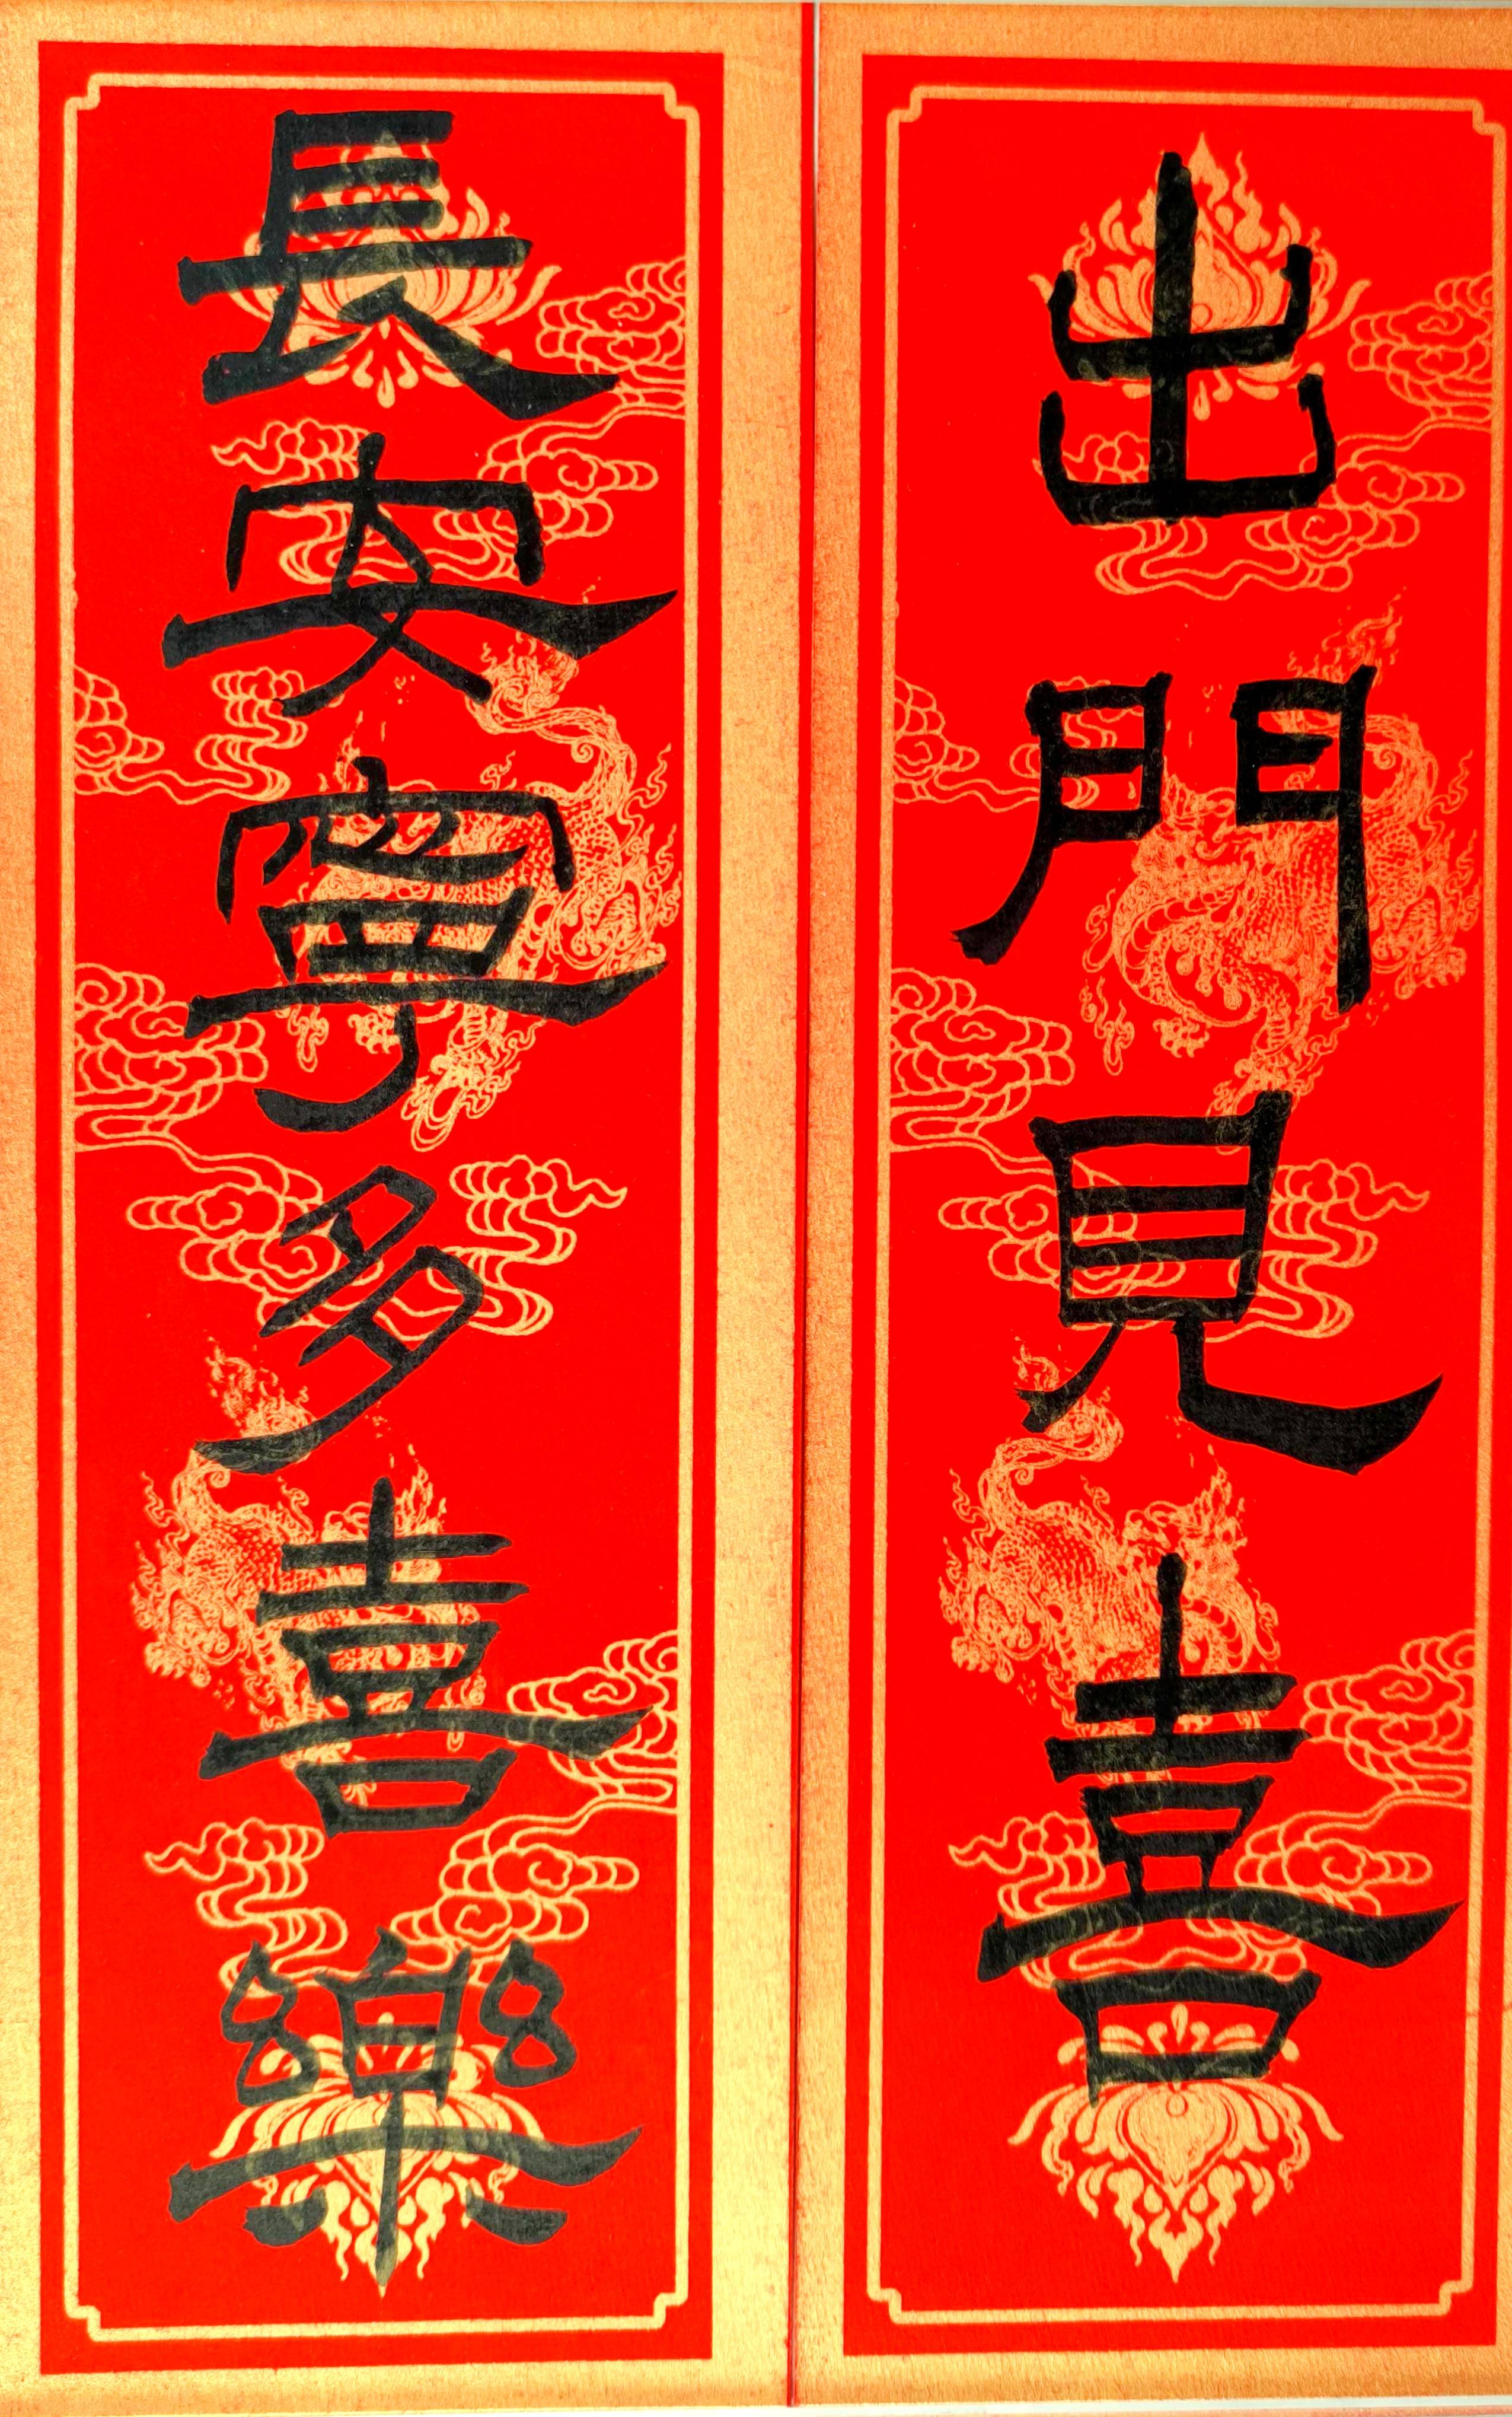 出門見喜
長安寧多喜樂